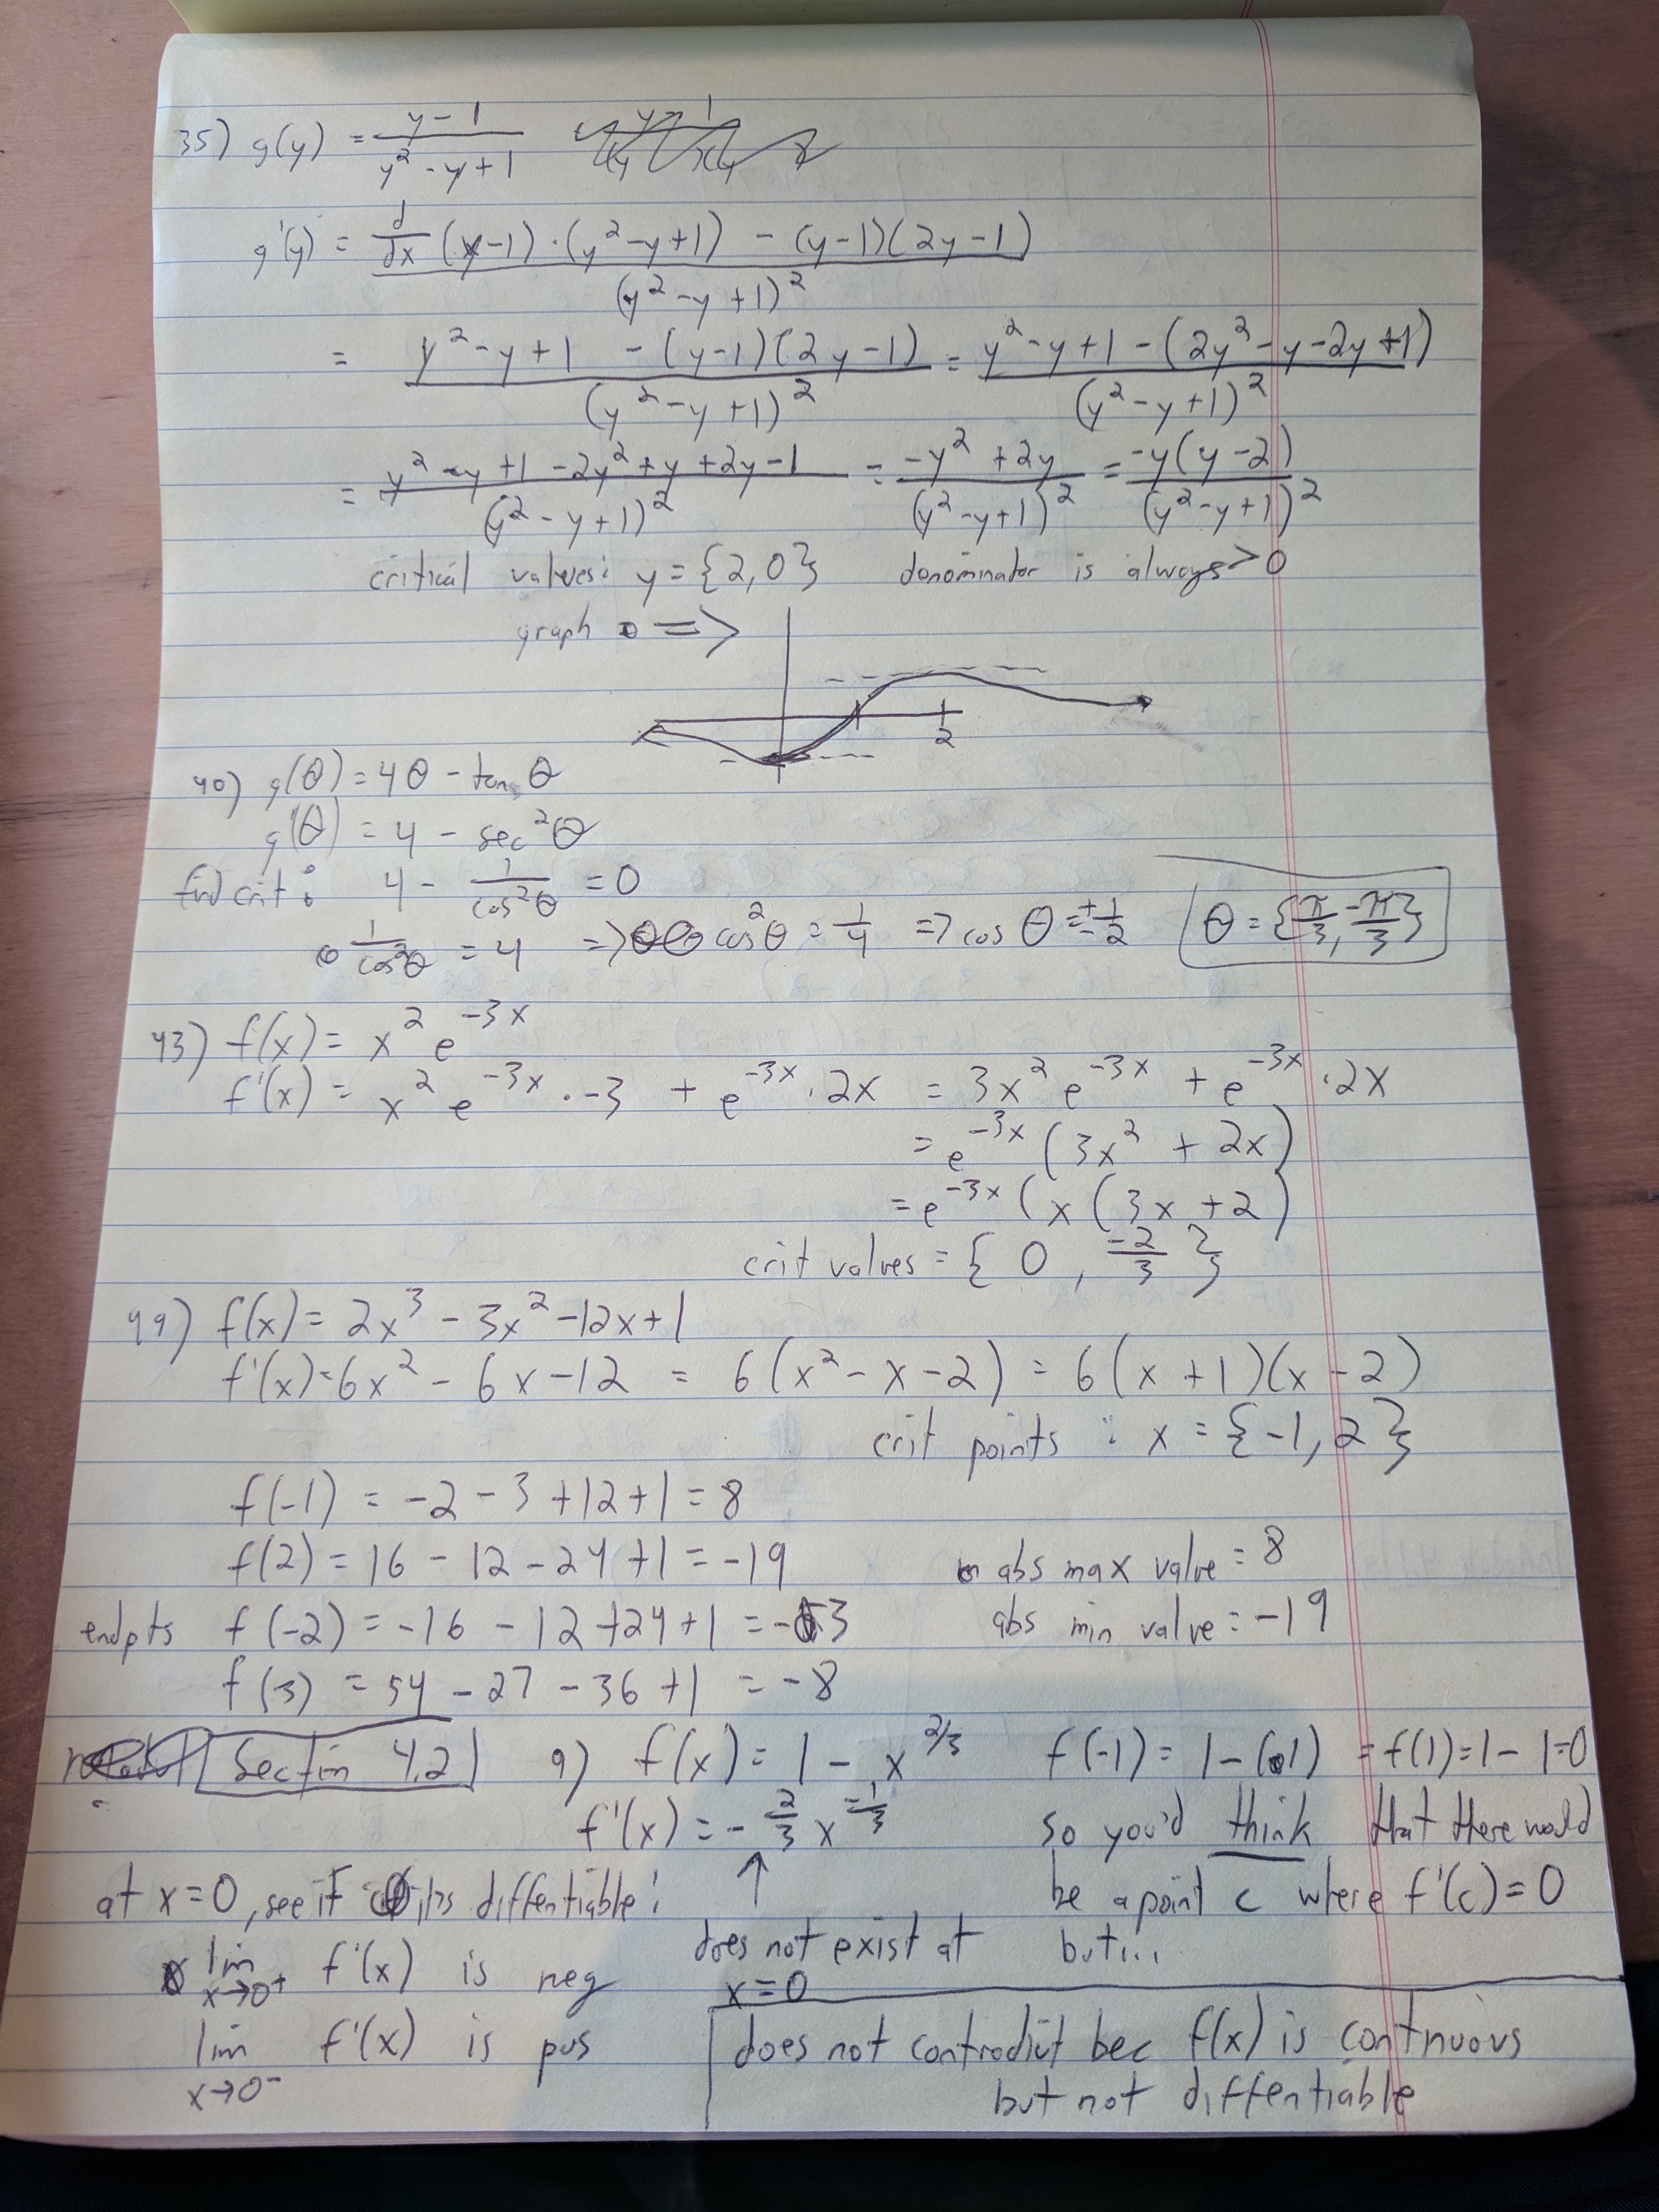 35) g(y) = (y-1)/(y²-y+1)
g'(y) = (d/dx (y-1)·(y²-y+1) - (y-1)(2y-1))/(y²-y+1)²
= (y²-y+1 - (y-1)(2y-1))/(y²-y+1)² = (y²-y+1-(2y²-y-2y+1))/(y²-y+1)²
= (y²-y+1-2y²+y+2y-1)/(y²-y+1)² = (-y²+2y)/(y²-y+1)² = (-y(y-2))/(y²-y+1)²
critical values: y = {2,0} denominator is always > 0
graph =>
2
40) g(θ) = 4θ - tan θ
g'(θ) = 4 - sec²θ
find crit: 4 - 1/cos²θ = 0
1/cos²θ = 4 => cos²θ = 1/4 => cos θ = ±1/2 θ = {π/3, -π/3}
43) f(x) = x² e^(-3x)
f'(x) = x² e^(-3x) · -3 + e^(-3x) · 2x = 3x² e^(-3x) + e^(-3x) · 2x
= e^(-3x) (3x² + 2x)
= e^(-3x) (x (3x + 2)
crit values = {0, -2/3}
49) f(x) = 2x³ - 3x² - 12x + 1
f'(x) = 6x² - 6x - 12 = 6(x² - x - 2) = 6(x + 1)(x - 2)
crit points : x = {-1, 2}
f(-1) = -2 - 3 + 12 + 1 = 8
f(2) = 16 - 12 - 24 + 1 = -19 abs max value = 8
endpts f(-2) = -16 - 12 + 24 + 1 = -3 abs min value = -19
f(3) = 54 - 27 - 36 + 1 = -8
Section 4.2 9) f(x) = 1 - x^(2/3) f(-1) = 1 - (1) = f(1) = 1 - 1 = 0
f'(x) = -2/3 x^(-1/3) so you'd think that there would
at x=0, see if its diffentiable: ↑ be a point c where f'(c) = 0
does not exist at but...
lim x→0⁺ f'(x) is neg x=0
lim x→0⁻ f'(x) is pos does not contradict bec f(x) is continuous
but not diffentiable